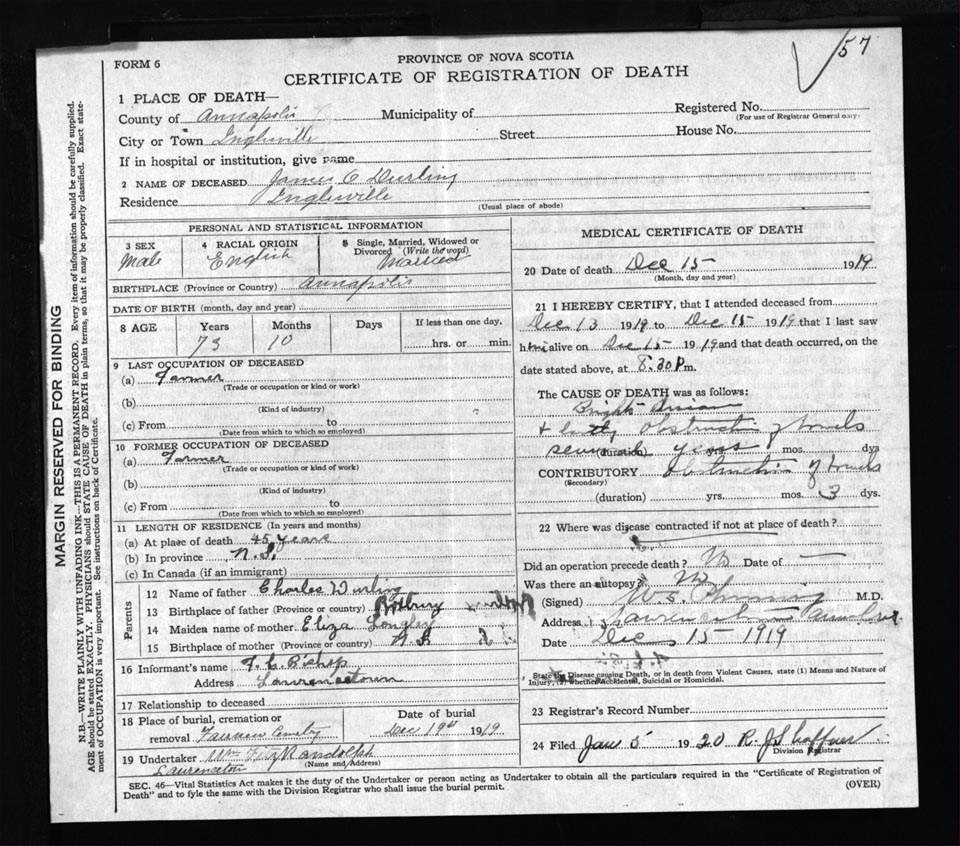 57
FORM 6
PROVINCE OF NOVA SCOTIA
CERTIFICATE OF REGISTRATION OF DEATH
1 PLACE OF DEATH—
County of Annapolis Municipality of Registered No.
(For use of Registrar General only)
City or Town Inglisville Street House No.
If in hospital or institution, give name
2 NAME OF DECEASED James C Durling
Residence Inglisville
(Usual place of abode)
PERSONAL AND STATISTICAL INFORMATION
3 SEX
Male
4 RACIAL ORIGIN
English
5 Single, Married, Widowed or Divorced (Write the word)
Married
BIRTHPLACE (Province or Country) Annapolis
DATE OF BIRTH (month, day and year)
8 AGE Years Months Days If less than one day,
73 10 hrs. or min.
9 LAST OCCUPATION OF DECEASED
(a) Farmer
(Trade or occupation or kind or work)
(b)
(Kind of industry)
(c) From to
(Date from which to which so employed)
10 FORMER OCCUPATION OF DECEASED
(a) Farmer
(Trade or occupation or kind of work)
(b)
(Kind of industry)
(c) From to
(Date from which to which so employed)
11 LENGTH OF RESIDENCE (In years and months)
(a) At place of death 45 years
(b) In province N.S.
(c) In Canada (if an immigrant)
Parents
12 Name of father Charles Durling
13 Birthplace of father (Province or country)
14 Maiden name of mother Eliza Longley
15 Birthplace of mother (Province or country) N.S.
16 Informant's name F. C. Bishop
Address Lawrencetown
17 Relationship to deceased
18 Place of burial, cremation or
removal Fairview Cemetry
Date of burial
Dec 19th 1919
19 Undertaker Wm FitzRandolph
(Name and Address)
Laurencetown
MEDICAL CERTIFICATE OF DEATH
20 Date of death Dec 15 1919
(Month, day and year)
21 I HEREBY CERTIFY, that I attended deceased from
Dec 13 1919 to Dec 15 1919 that I last saw
him alive on Dec 15 1919 and that death occurred, on the
date stated above, at 8.30 P.m.
The CAUSE OF DEATH was as follows:
Brights disease
& lastly obstruction of bowels
several years (duration) yrs. mos. dys
CONTRIBUTORY obstruction of bowels
(Secondary)
(duration) yrs. mos. 3 dys.
22 Where was disease contracted if not at place of death?
Did an operation precede death? No Date of —
Was there an autopsy? No
(Signed) M.D.
Address
Date Dec 15 1919
State the Disease causing Death, or in death from Violent Causes, state (1) Means and Nature of
Injury, (2) whether Accidental, Suicidal or Homicidal.
23 Registrar's Record Number
24 Filed Jan 5 1920 R. J Shaffner
Division Registrar
SEC. 46—Vital Statistics Act makes it the duty of the Undertaker or person acting as Undertaker to obtain all the particulars required in the "Certificate of Registration of
Death" and to fyle the same with the Division Registrar who shall issue the burial permit.
(OVER)
MARGIN RESERVED FOR BINDING
N.B.—WRITE PLAINLY WITH UNFADING INK—THIS IS A PERMANENT RECORD. Every item of information should be carefully supplied.
AGE should be stated EXACTLY. PHYSICIANS should STATE CAUSE OF DEATH in plain terms, so that it may be properly classified. Exact state-
ment of OCCUPATION is very important. See instructions on back of Certificate.